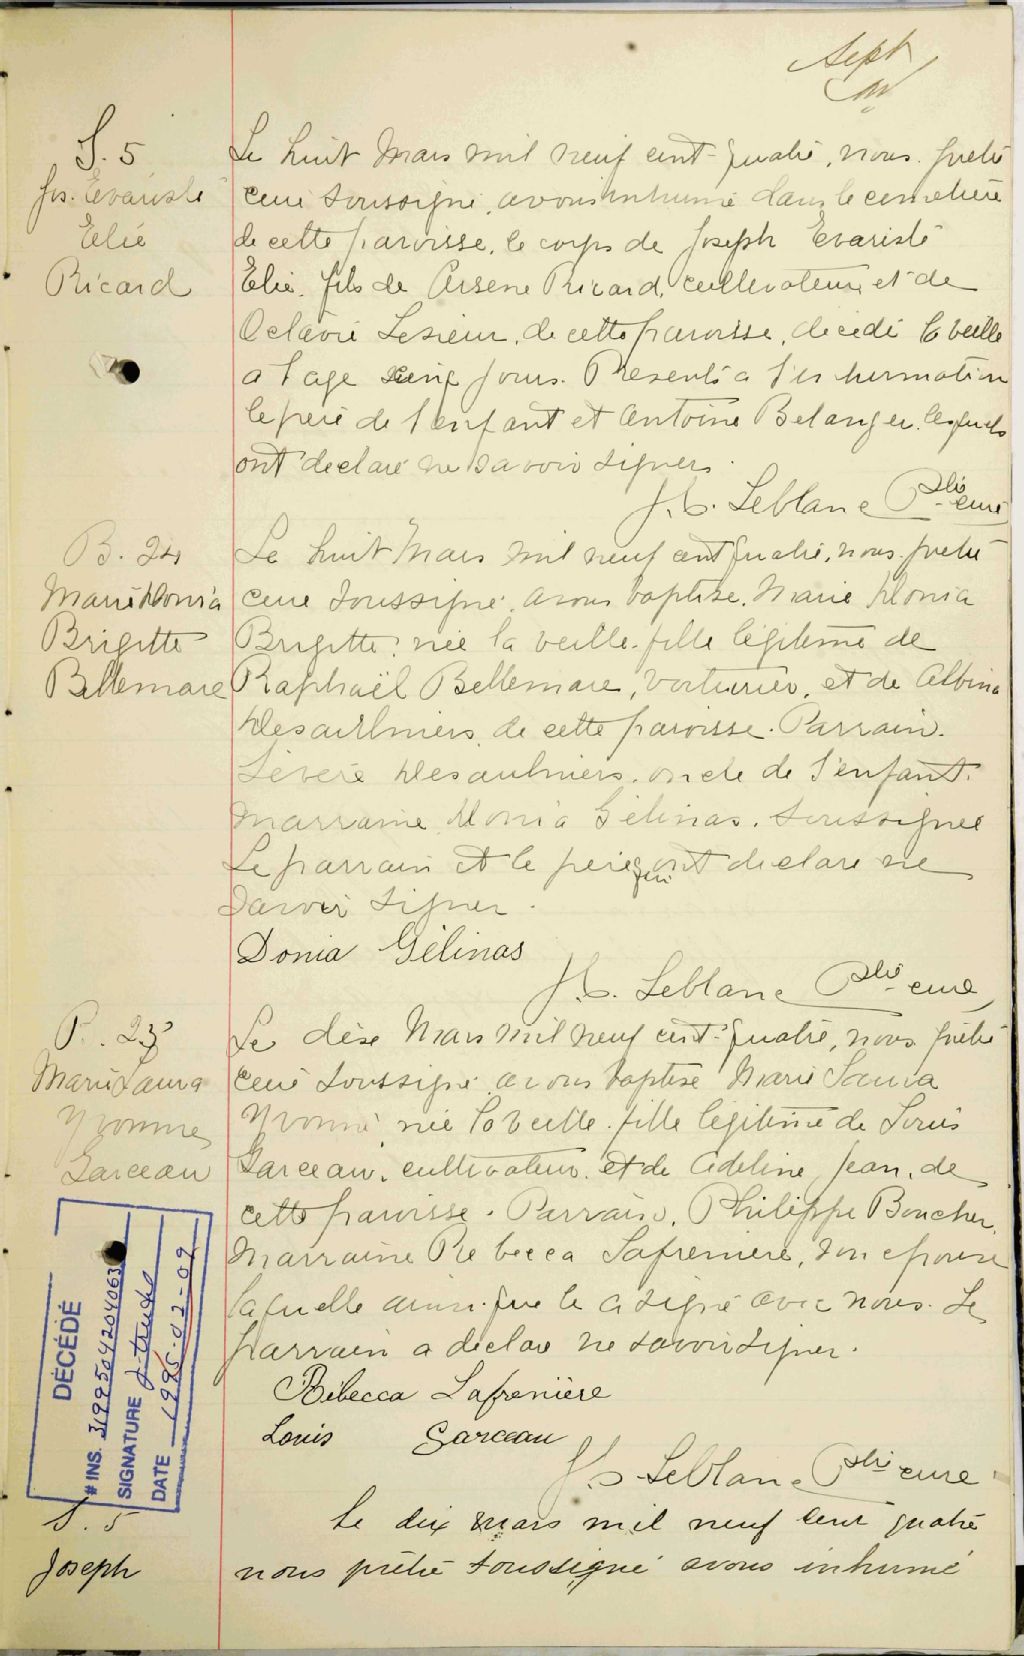 Sept
S. 5
Jos. Evariste
Elie
Ricard
Le huit Mars mil neuf cent quatre, nous prêtre
curé soussigné, avons inhumé dans le cimetière
de cette paroisse, le corps de Joseph Evariste
Elie, fils de Arsene Ricard, cultivateur et de
Octavie Lesieur, de cette paroisse, décédé la veille
a l'age cinq jours. Présents a l'inhumation
le père de l'enfant et Antoine Belanger, lesquels
ont declaré ne savoir signer.
J. C. Leblanc Ptre curé
B. 24
Marie Donia
Brigitte
Bellemare
Le huit Mars mil neuf cent quatre, nous prêtre
curé soussigné, avons baptisé Marie Donia
Brigitte, née la veille, fille légitime de
Raphaël Bellemare, voiturier, et de Albina
Desaulniers, de cette paroisse. Parrain.
Sévère Desaulniers, oncle de l'enfant.
Marraine Donia Gélinas, soussignée
Le parrain et le père qui ont declaré ne
savoir signer.
Donia Gélinas
J. C. Leblanc Ptre curé
B. 25
Marie Laura
Yvonne
Garceau
Le dixe Mars mil neuf cent quatre, nous prêtre
curé soussigné avons baptisé Marie Laura
Yvonne née la veille, fille légitime de Louis
Garceau, cultivateur, et de Adeline Jean, de
cette paroisse. Parrain, Philippe Boucher,
Marraine Rebecca Lafreniere, son epouse
laquelle ainsi que le a signé avec nous. Le
parrain a declaré ne savoir signer.
Rébecca Lafrenière
Louis Garceau
J. C. Leblanc Ptre curé
DÉCÉDÉ
# INS. 3199504204063
SIGNATURE J. Trudel
DATE 1995-02-09
S. 5
Joseph
Le dix mars mil neuf cent quatre
nous prêtre soussigné avons inhumé